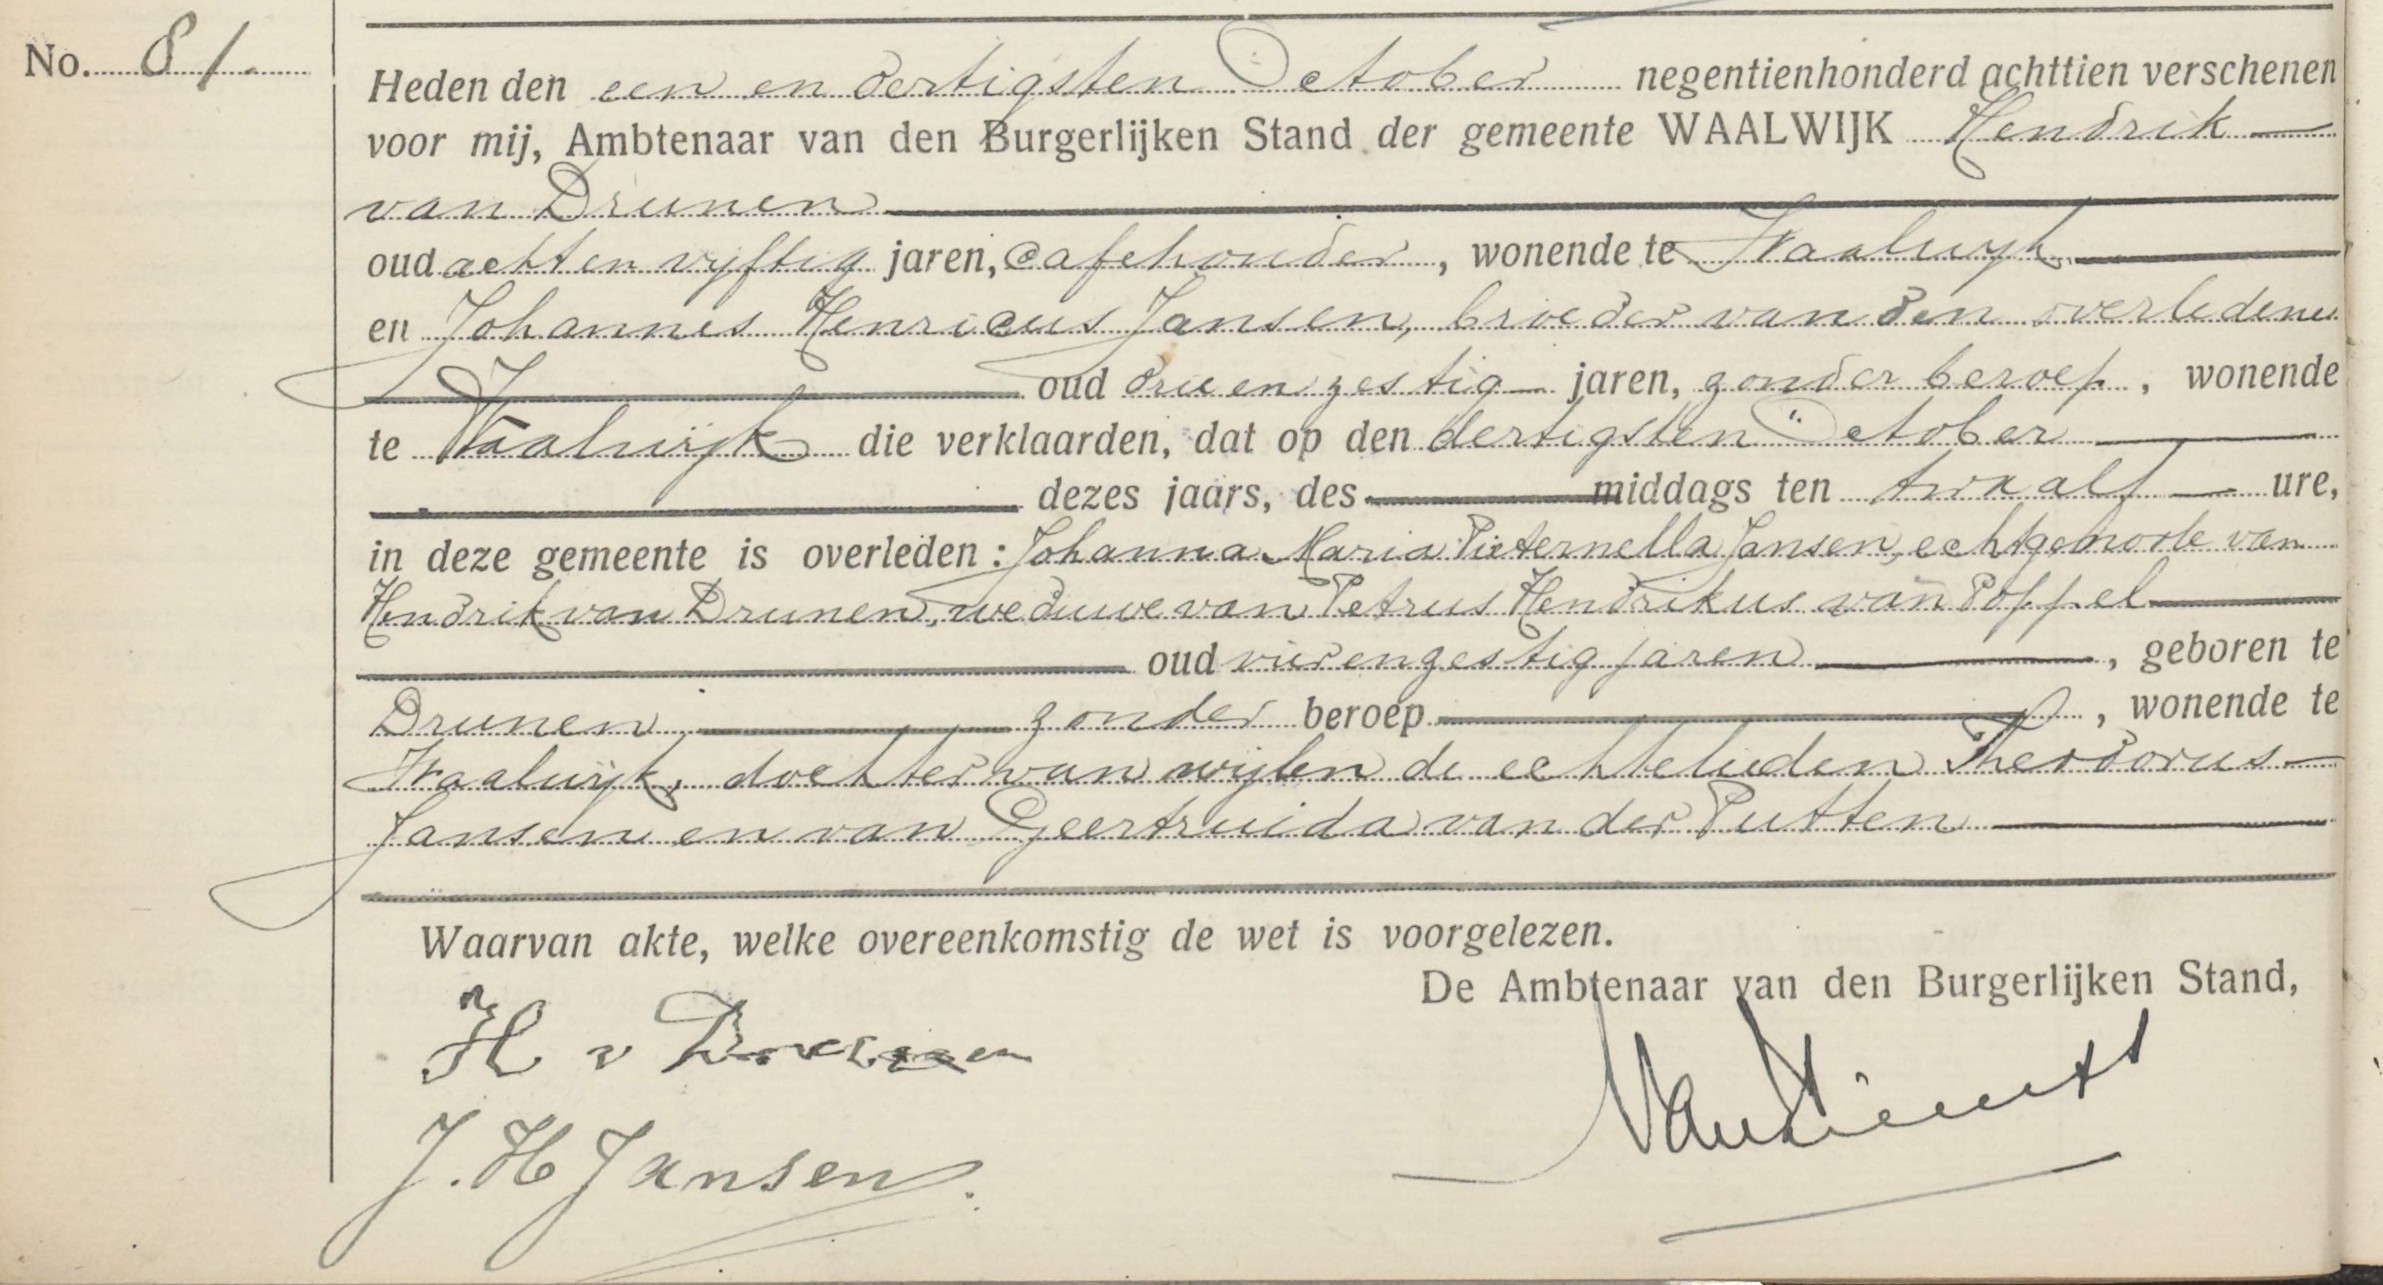 No. 81.
Heden den een en dertigsten October negentienhonderd achttien verschenen
voor mij, Ambtenaar van den Burgerlijken Stand der gemeente WAALWIJK Hendrik
van Drunen
oud acht en vijftig jaren, cafehouder, wonende te Waalwijk
en Johannes Henricus Jansen, broeder van den overledene
oud drie en zestig jaren, zonder beroep, wonende
te Waalwijk die verklaarden, dat op den dertigsten October
dezes jaars, des middags ten twaalf ure,
in deze gemeente is overleden: Johanna Maria Pieternella Jansen, echtgenoote van
Hendrik van Drunen, weduwe van Petrus Hendrikus van Poppel
oud vierenzestig jaren, geboren te
Drunen, zonder beroep, wonende te
Waalwijk, dochter van wijlen de echtelieden Theodorus
Jansen en van Geertruida van der Putten
Waarvan akte, welke overeenkomstig de wet is voorgelezen.
De Ambtenaar van den Burgerlijken Stand,
H v Drunen
J. H Jansen.